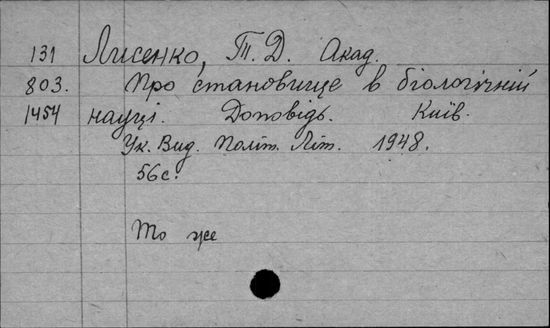 131 Лисенко, Т. Д. Акад.
803. Про становище в біологічній
1454 науці. Доповідь. Київ.
Ук. Вид. Політ. Літ. 1948.
56 с.
То же